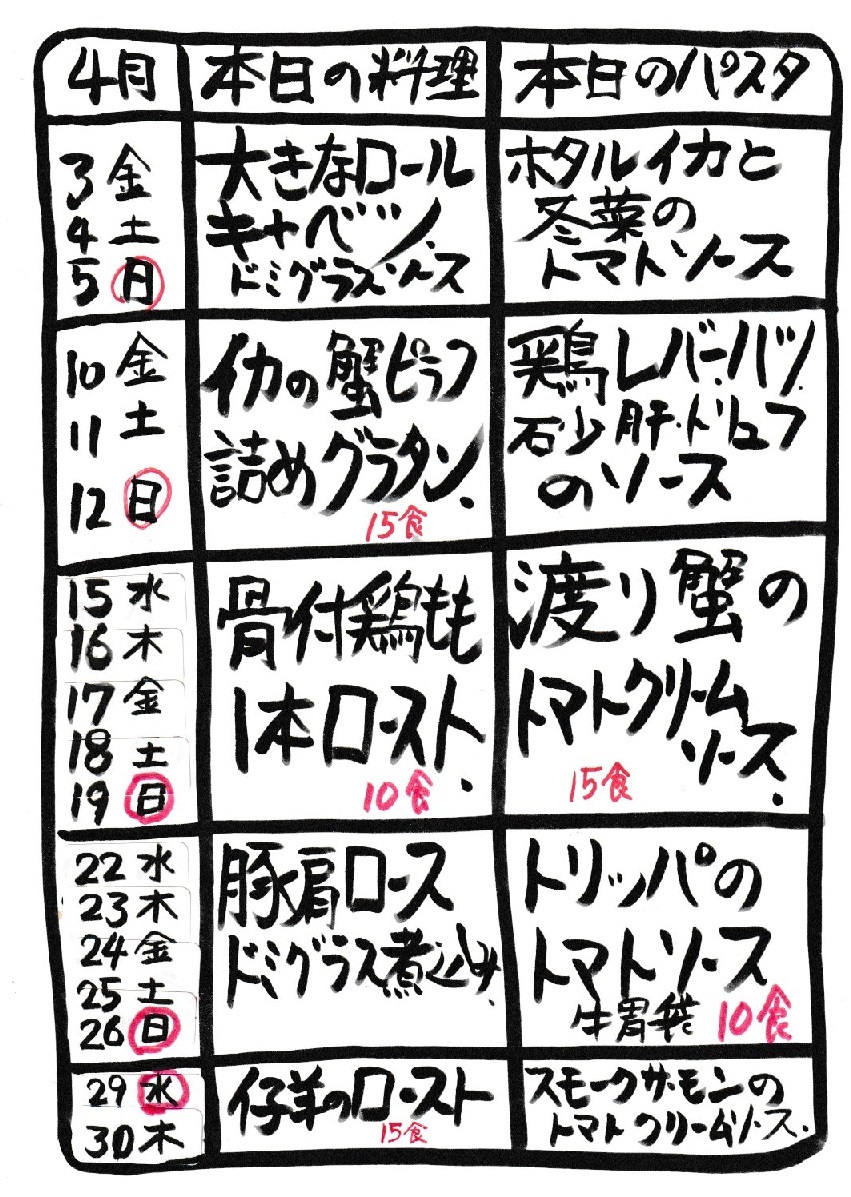 4月 本日の料理 本日のパスタ
3 金
4 土
5 日
大きなロール
キャベツ.
ドミグラスソース
ホタルイカと
冬葉の
トマトソース
10 金
11 土
12 日
イカの蟹ピラフ
詰めグラタン.
15食
鶏レバー.ハツ.
砂肝.トリュフ
のソース
15 水
16 木
17 金
18 土
19 日
骨付鶏もも
1本ロースト.
10食
渡り蟹の
トマトクリーム
ソース.
15食
22 水
23 木
24 金
25 土
26 日
豚肩ロース
ドミグラス煮込み.
トリッパの
トマトソース
牛胃袋 10食
29 水
30 木
仔羊のロースト
15食
スモークサーモンの
トマトクリームソース.